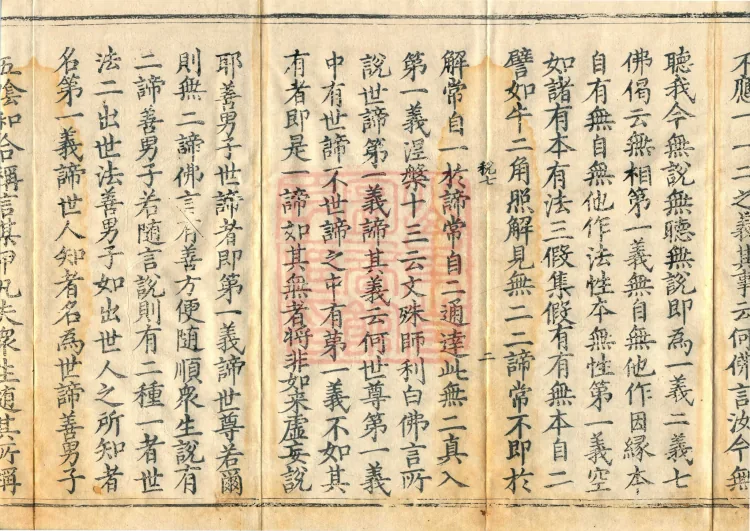 不應一一二之義其事云何佛言汝今無
聽我今無說無聽無說即爲一義二義七
佛偈云無相第一義無自無他作因緣本
自有無自無他作法性本無性第一義空
如諸有本有法三假集假有有無本自二
譬如牛二角照解見無二二諦常不即於
稅七
二
解常自一於諦常自二通達此無二真入
第一義涅槃十三云文殊師利白佛言所
說世諦第一義諦其義云何世尊第一義
中有世諦不世諦之中有第一義不如其
有者即是一諦如其無者將非如来虛妄說
耶善男子世諦者即第一義諦世尊若爾
則無二諦佛言有善方便随順衆生說有
二諦善男子若随言說則有二種一者世
法二出世法善男子如出世人之所知者
名第一義諦世人知者名爲世諦善男子
五陰和合稱言某甲凡夫衆生随其所稱